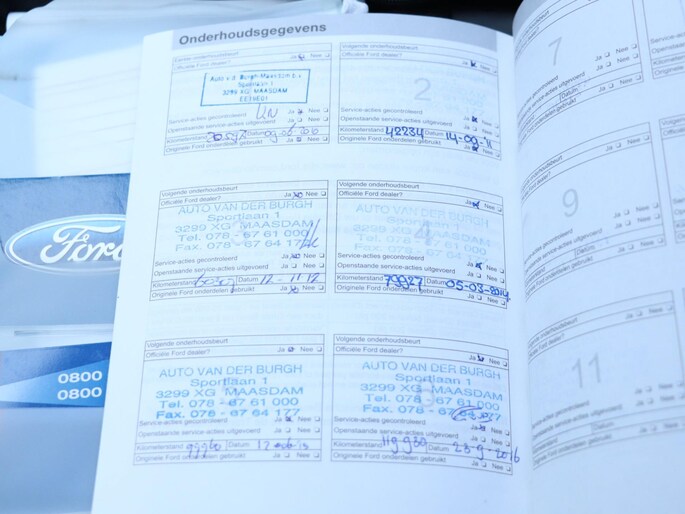 Onderhoudsgegevens
Eerste onderhoudsbeurt
Officiële Ford dealer? Ja Nee
Auto v.d. Burgh-Maasdam b.v.
Sportlaan 1
3299 XG MAASDAM
Service-acties gecontroleerd Ja Nee
Openstaande service-acties uitgevoerd Ja Nee
Kilometerstand Datum
Originele Ford onderdelen gebruikt Ja Nee
Volgende onderhoudsbeurt
Officiële Ford dealer? Ja Nee
2
Service-acties gecontroleerd Ja Nee
Openstaande service-acties uitgevoerd Ja Nee
Kilometerstand 42234 Datum 14-09-11
Originele Ford onderdelen gebruikt Ja Nee
Volgende onderhoudsbeurt
Officiële Ford dealer? Ja Nee
AUTO VAN DER BURGH
Sportlaan 1
3299 XG MAASDAM
Tel. 078 - 67 61 000
Fax. 078 - 67 64 177
Service-acties gecontroleerd Ja Nee
Openstaande service-acties uitgevoerd Ja Nee
Kilometerstand Datum 12-11-12
Originele Ford onderdelen gebruikt Ja Nee
Volgende onderhoudsbeurt
Officiële Ford dealer? Ja Nee
AUTO VAN DER BURGH
Sportlaan 1
4
3299 XG MAASDAM
Tel. 078 - 67 61 000
Fax. 078 - 67 64 177
Service-acties gecontroleerd Ja Nee
Openstaande service-acties uitgevoerd Ja Nee
Kilometerstand 79927 Datum 05-03-2014
Originele Ford onderdelen gebruikt Ja Nee
Volgende onderhoudsbeurt
Officiële Ford dealer? Ja Nee
AUTO VAN DER BURGH
Sportlaan 1
3299 XG MAASDAM
Tel. 078 - 67 61 000
Fax. 078 - 67 64 177
Service-acties gecontroleerd Ja Nee
Openstaande service-acties uitgevoerd Ja Nee
Kilometerstand Datum
Originele Ford onderdelen gebruikt Ja Nee
Volgende onderhoudsbeurt
Officiële Ford dealer? Ja Nee
AUTO VAN DER BURGH
Sportlaan 1
3299 XG MAASDAM
Tel. 078 - 67 61 000
Fax. 078 - 67 64 177
Service-acties gecontroleerd Ja Nee
Openstaande service-acties uitgevoerd Ja Nee
Kilometerstand 119930 Datum 23-9-2016
Originele Ford onderdelen gebruikt Ja Nee
Volgende onderhoudsbeurt
Officiële Ford dealer?
7
Service-acties gecontroleerd Ja Nee
Openstaande service-acties uitgevoerd Ja Nee
Kilometerstand Datum
Originele Ford onderdelen gebruikt Ja Nee
Volgende onderhoudsbeurt
Officiële Ford dealer?
9
Service-acties gecontroleerd
Openstaande service-acties uitgevoerd
Kilometerstand Datum
Originele Ford onderdelen gebruikt
Volgende onderhoudsbeurt
Officiële Ford dealer?
11
Service-acties gecontroleerd
Openstaande service-acties uitgevoerd
Kilometerstand
Originele Ford onderdelen gebruikt
Ford
0800
0800